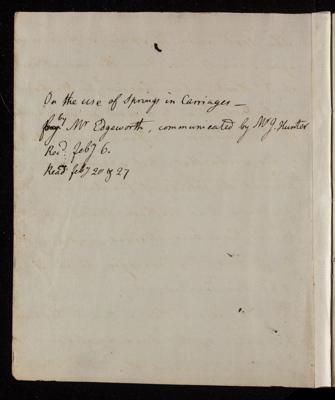 On the use of Springs in Carriages —
by Mr Edgeworth, communicated by Mr J. Hunter
Recd. Feby 6.
Read feby 20 & 27